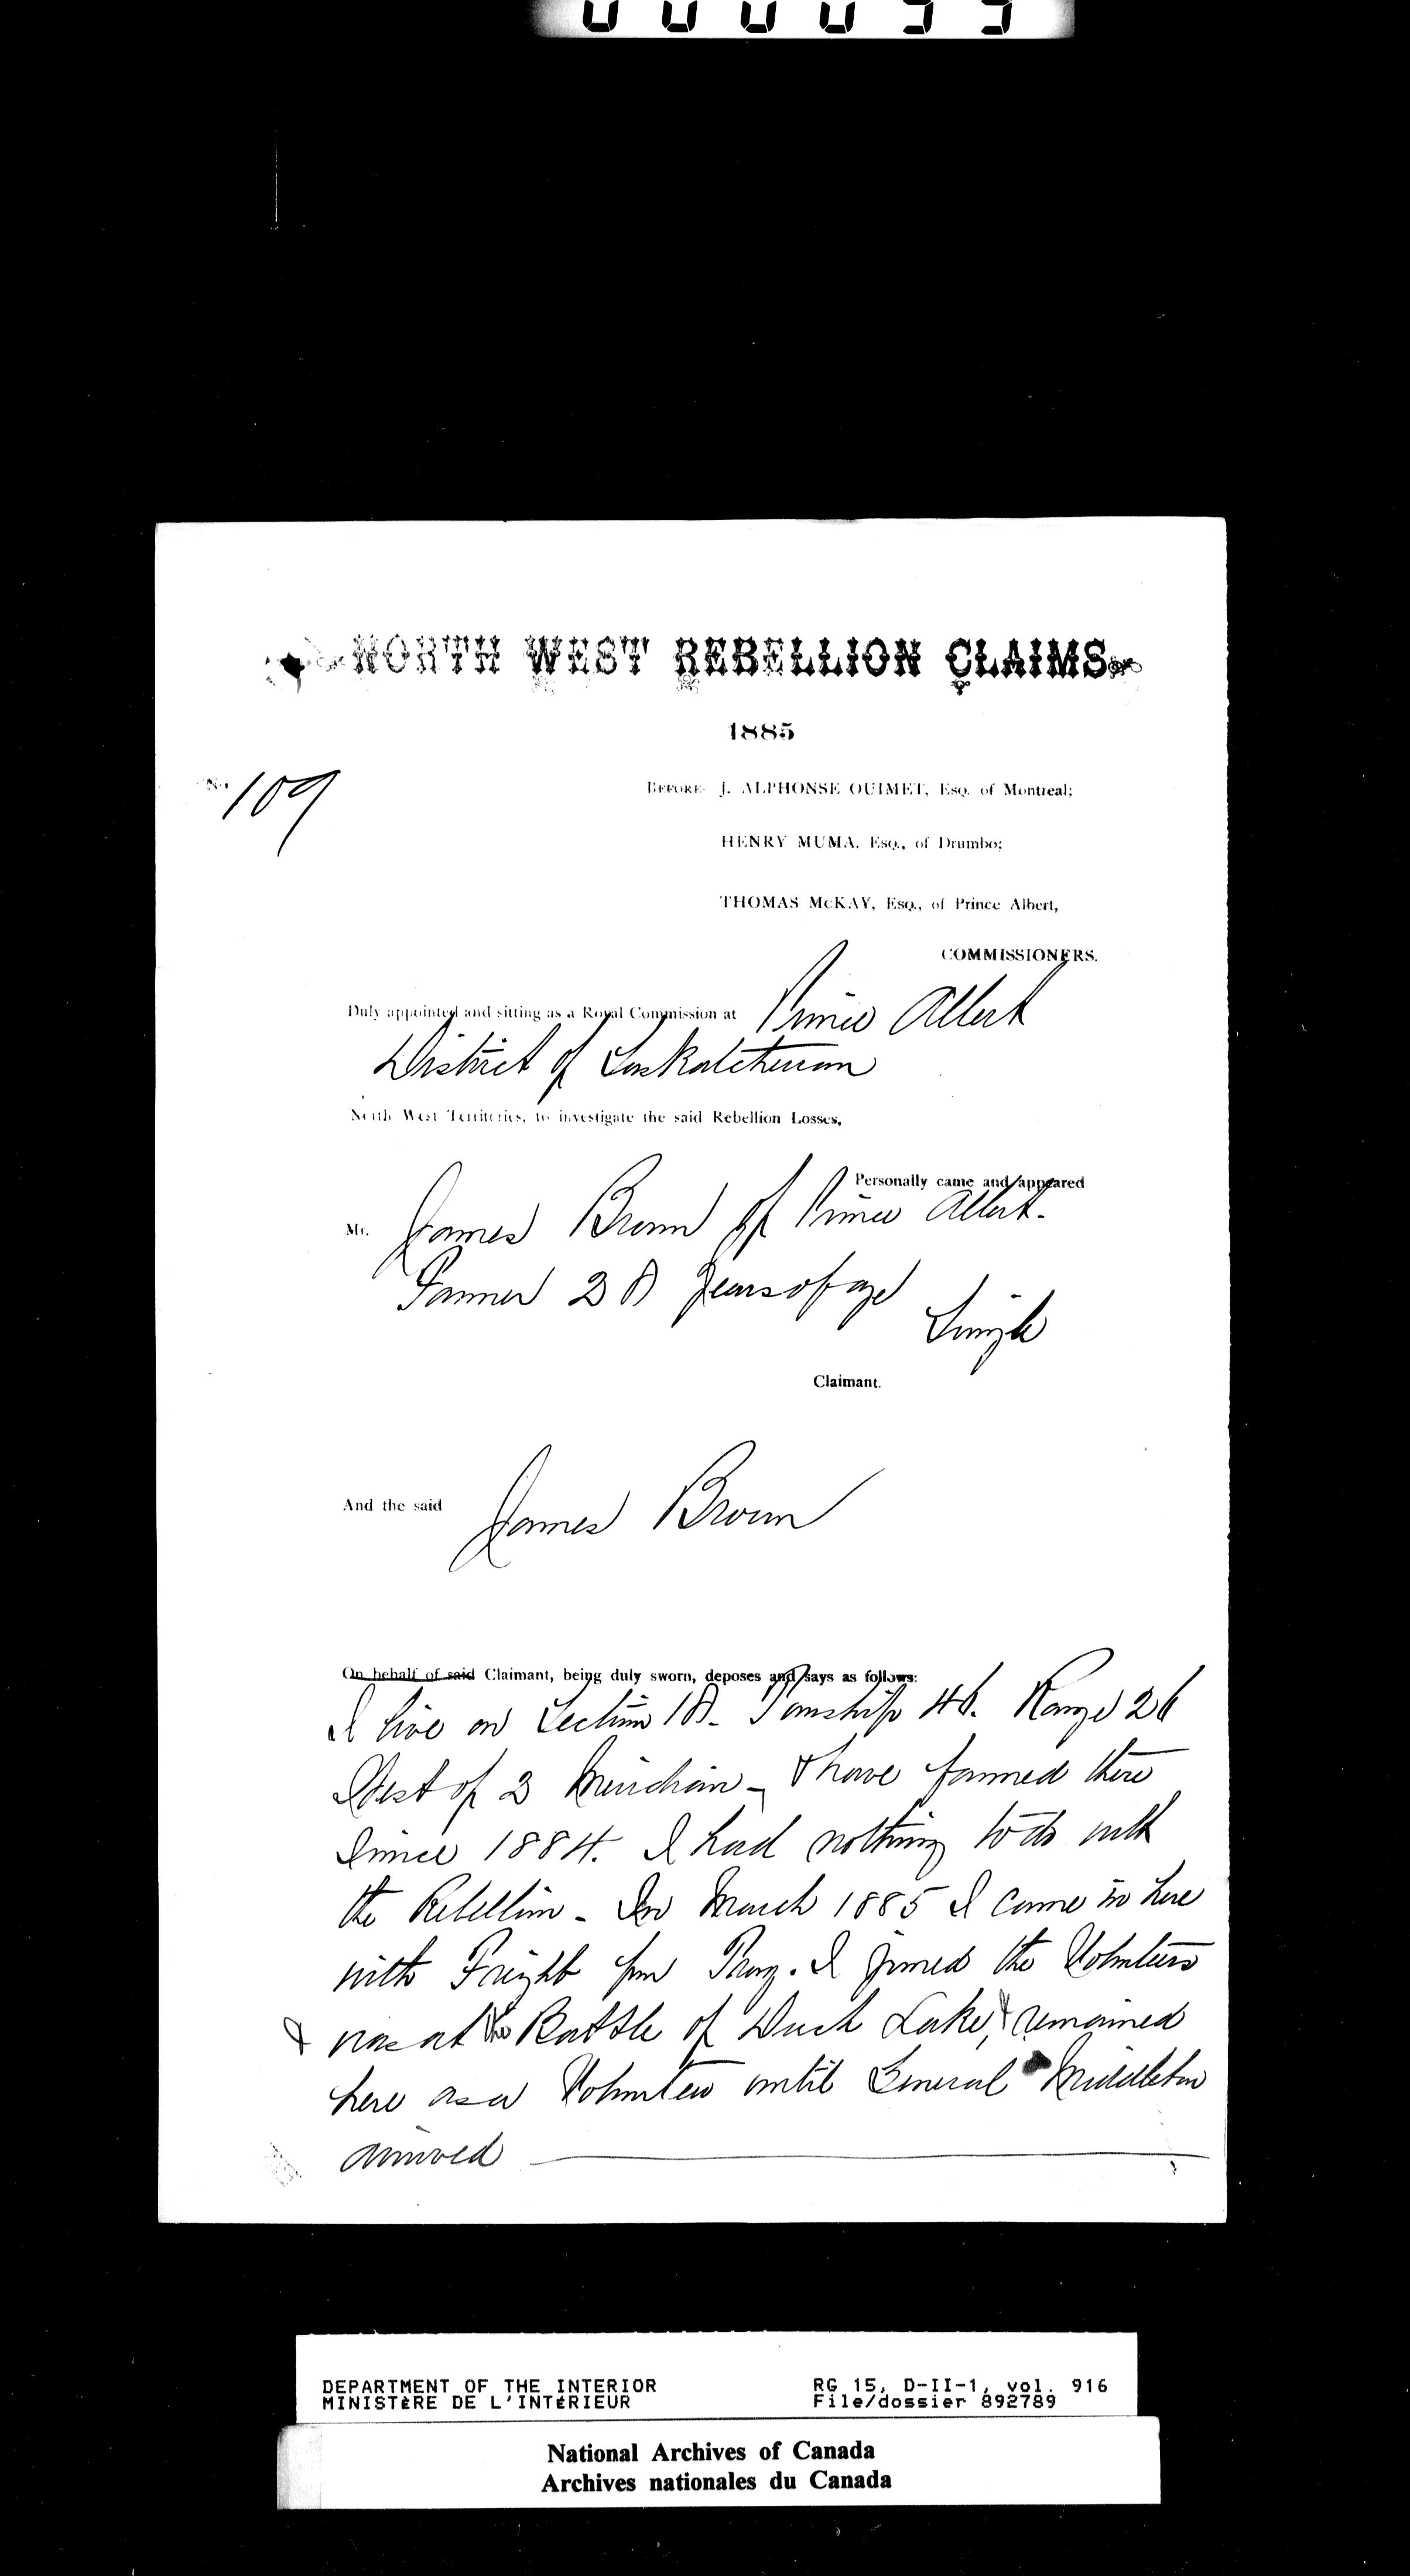 NORTH WEST REBELLION CLAIMS.
1885
No. 109
BEFORE J. ALPHONSE OUIMET, Esq. of Montreal;
HENRY MUMA, Esq., of Drumbo;
THOMAS McKAY, Esq., of Prince Albert,
COMMISSIONERS.
Duly appointed and sitting as a Royal Commission at Prince Albert
District of Saskatchewan
North West Territories, to investigate the said Rebellion Losses,
Personally came and appeared
Mr. James Brown of Prince Albert.
Farmer 28 years of age
Single
Claimant.
And the said James Brown
On behalf of said Claimant, being duly sworn, deposes and says as follows:
I live on Section 18 - Township 46. Range 26
West of 2 Meridian - & have farmed there
Since 1884. I had nothing to do with
the Rebellion - In March 1885 I came in here
with Freight for . I joined the Volunteers
& was at the Battle of Duck Lake, & remained
here as a Volunteer until General Middleton
arrived
DEPARTMENT OF THE INTERIOR RG 15, D-II-1, vol. 916
MINISTÈRE DE L'INTÉRIEUR File/dossier 892789
National Archives of Canada
Archives nationales du Canada